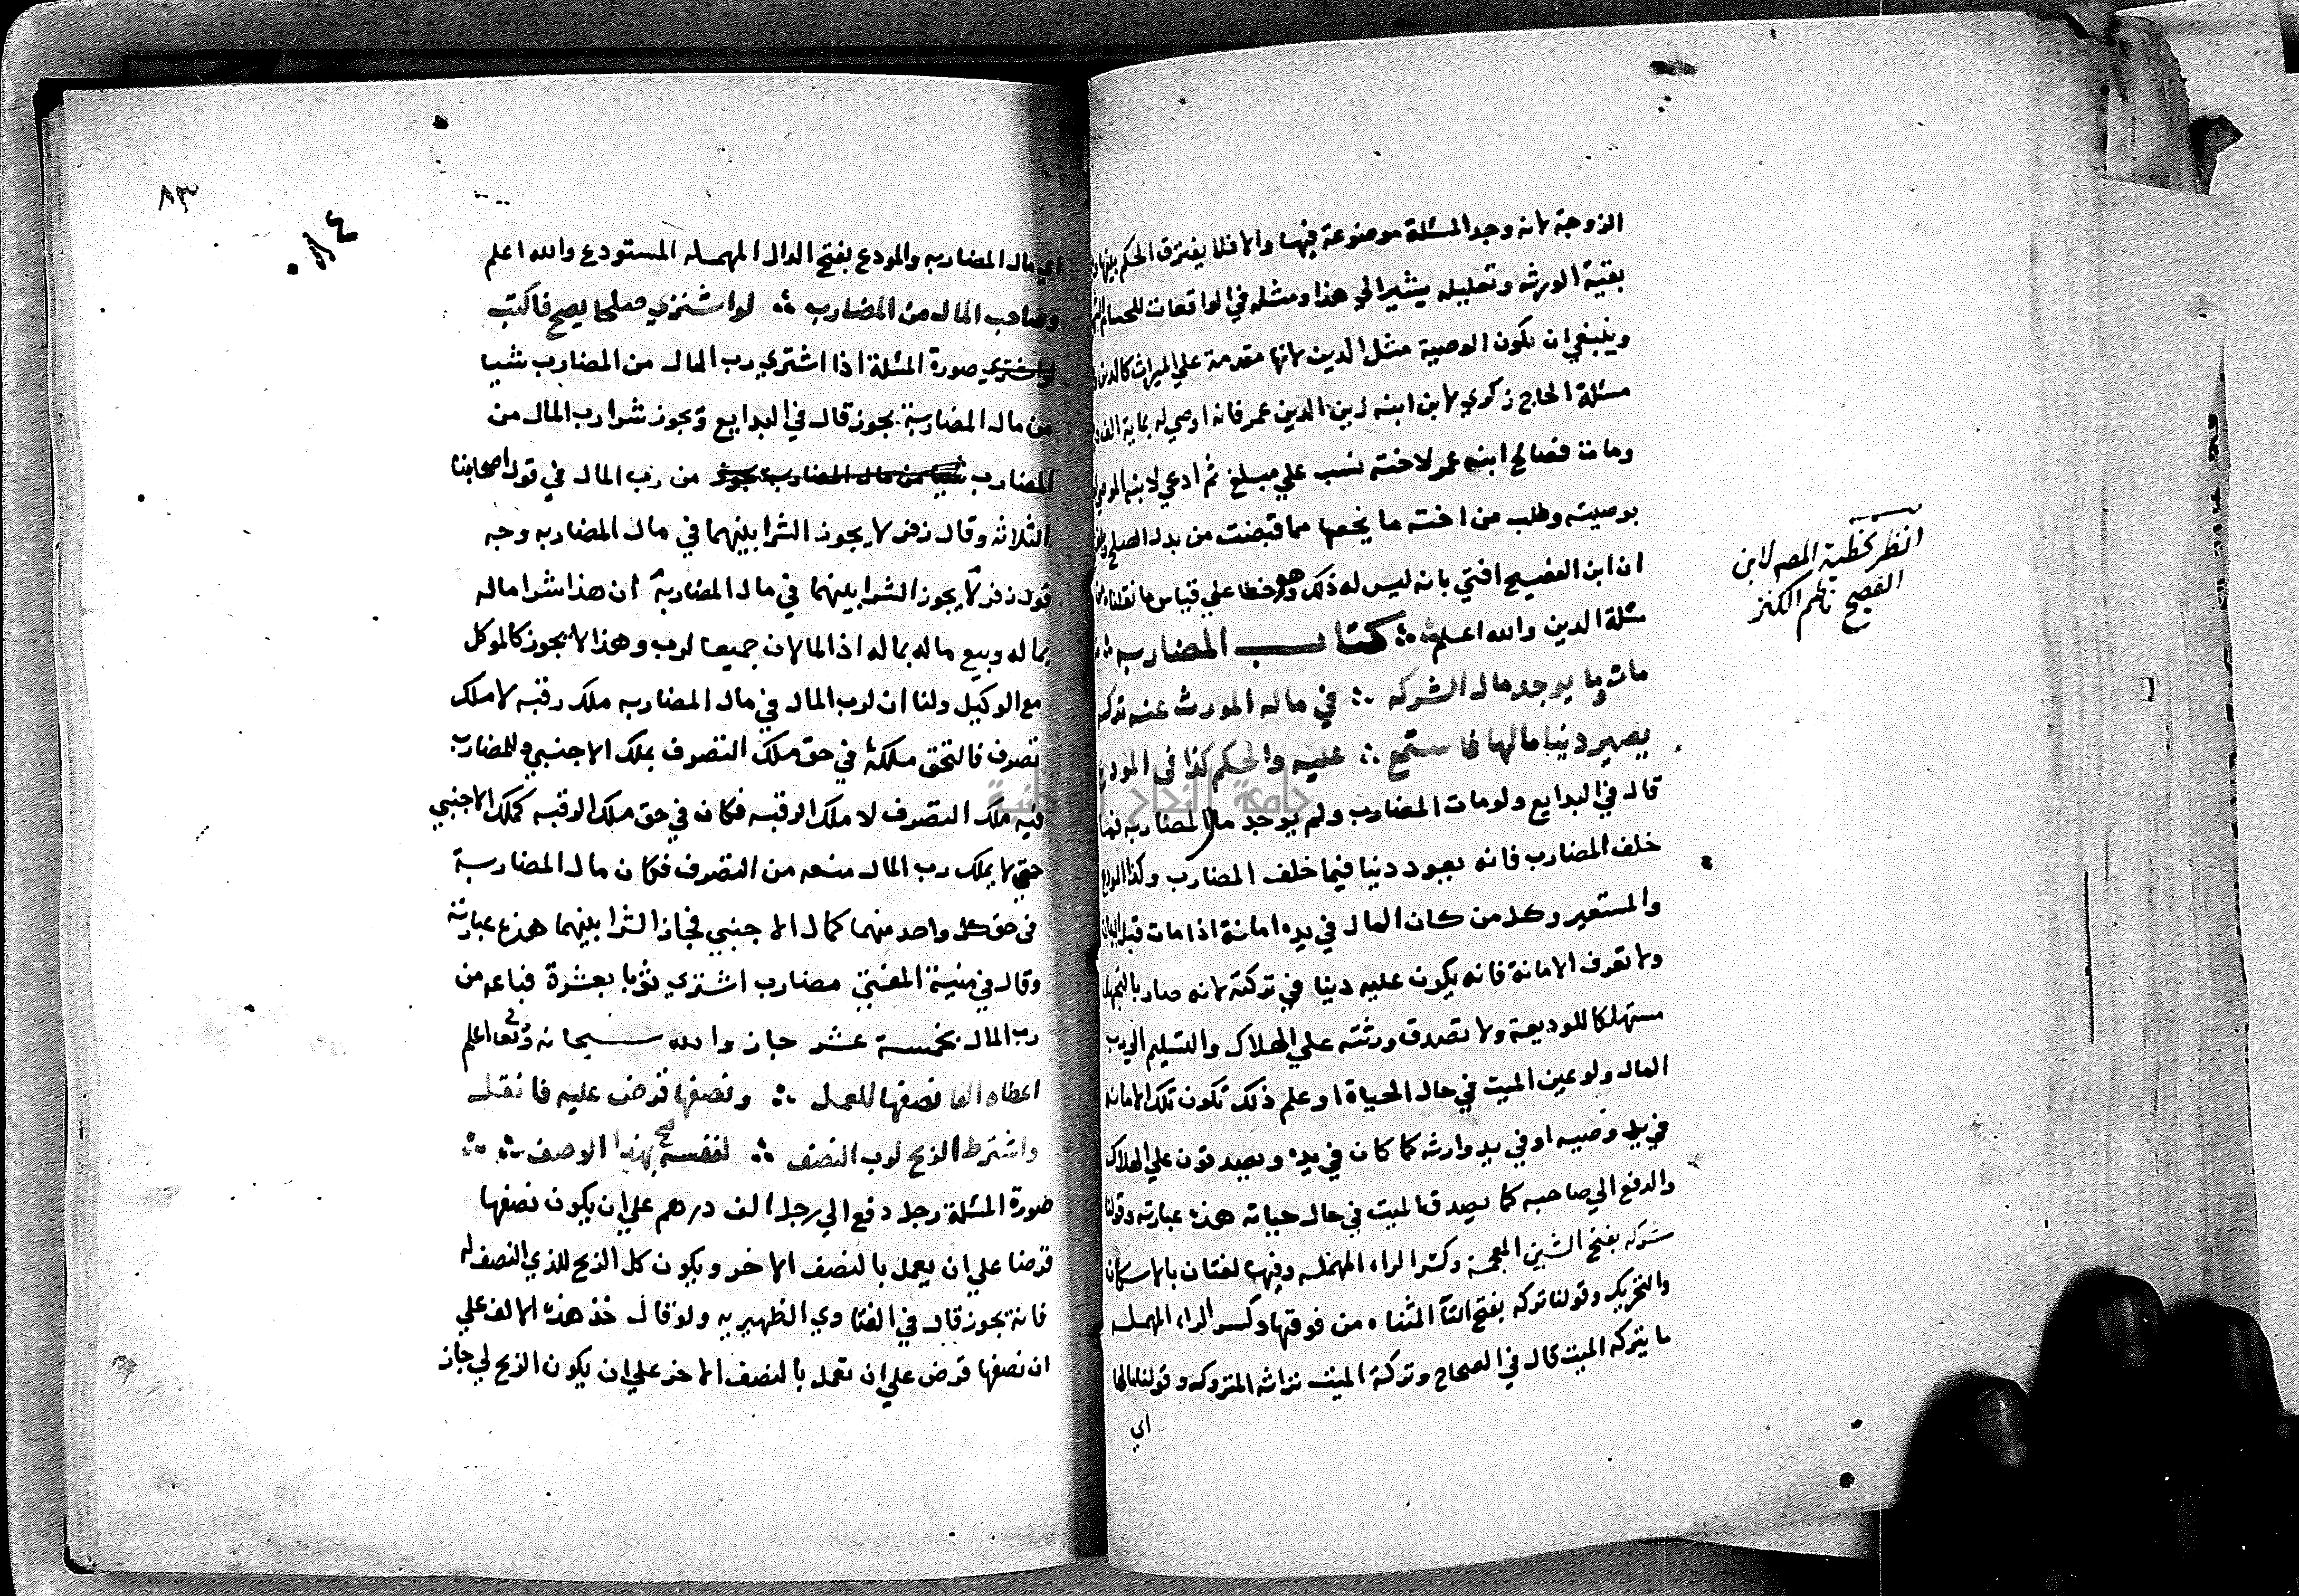 الزوجة لانه وجد المسئلة موضوعة فيها والا فلا يفترق الحكم بينها و
بقية الورثه وتعليله يشير الي هذا ومثله في الواقعات للحسام
وينبغي ان تكون الوصية مثل الدين لانها مقدمة علي الميراث كالدين
مسئلة الحاج زكري لابن ابنه زين الدين عمر فانه اوصي له بماية الف
ومات فصالح ابنه عمر لاخته نسب علي مبلغ ثم ادعي لابنه الموصي
بوصيته وطلب من اخته ما يخصها مما قبضت من بدل الصلح
ان ابن الفصيح افتي بانه ليس له ذلك وهو خطا علي قياس ما نقلناه
مسئلة الدين والله اعلم ؞ كتاب المضاربه ؞
مات وما يوجد مال الشركه ؞ في ماله المورث عنه تركه
يصير دينا مالها فاستمع ؞ عليه والحكم كذا في المودع
قال في البدايع ولو مات المضارب ولم يوجد مال المضاربه فيما
خلف المضارب فانه يعود دينا فيما خلف المضارب وكذا المودع
والمستعير وكل من كان المال في يده امانة اذا مات قبل البيان
ولا تعرف الامانة فانه يكون عليه دينا في تركته لانه صار بالتجهيل
مستهلكا للوديعة ولا تصدق ورثته علي الهلاك والتسليم الي رب
المال ولو عين الميت في حال الحياة او علم ذلك تكون تلك الامانة
في يد وصيه او في يد وارثه كما كان في يده ويصدقون علي الهلاك
والدفع الي صاحبه كما يصدق الميت في حال حياته هذه عبارته وقولنا
شركه بفتح الشين المعجمة وكسر الراء المهملة وفيها لغتان بالاسكان
والتحريك وقولنا تركه بفتح التآ المثناه من فوقها وكسر الراء المهمله
ما يتركه الميت قال في الصحاح وتركة الميت تراثه المتروك وقولنا مالها
اي
انظر تخطية المصه لابن
الفصيح ناظم الكنز
٨٣
اي مال المضاربه والمودع بفتح الدال المهمله المستودع والله اعلم
وصاحب المال من المضارب ؞ لو اشتري صلحا يصح فاكتب
لو اشتري صورة المسئلة اذا اشتري رب المال من المضارب شيا
من مال المضاربة يجوز قال في البدايع ويجوز شرا رب المال من
المضارب شيا من مال المضاربة يجوز من رب المال في قول اصحابنا
الثلاثه وقال زفر لا يجوز الشرا بينهما في مال المضاربه وجه
قول زفر لا يجوز الشرا بينهما في مال المضاربة ان هذا شرا ماله
بماله وبيع ماله بماله اذ المالان جميعا لرب وهذا لا يجوز كالموكل
مع الوكيل ولنا ان لرب المال في مال المضاربه ملك رقبه لا ملك
تصرف فالتحق ملكه في حق ملك التصرف بملك الاجنبي وللمضارب
فيه ملك التصرف لا ملك الرقبه فكان في حق ملك الرقبه كملك الاجنبي
حتي لا يملك رب المال منعه من التصرف فكان مال المضاربة
في حق كل واحد منهما كمال الاجنبي فجاز الشرا بينهما هذه عبارته
وقال في منية المفتي مضارب اشتري ثوبا بعشرة فباعه من
رب المال بخمسة عشر جاز والله سبحانه وتعا اعلم
اعطاه الفا نصفها للعمل ؞ ونصفها قرض عليه فانقل
واشترط الربح لرب النصف ؞ لنفسه صح بهذا الوصف ؞ ؞
صورة المسئلة رجل دفع الي رجل الف درهم علي ان يكون نصفها
قرضا علي ان يعمل بالنصف الاخر ويكون كل الربح للذي النصف له
فانه يجوز قال في الفتاوي الظهيريه ولو قال خذ هذه الالف علي
ان نصفها قرض علي ان تعمل بالنصف الاخر علي ان يكون الربح لي جاز
جامعة النجاح الوطنية